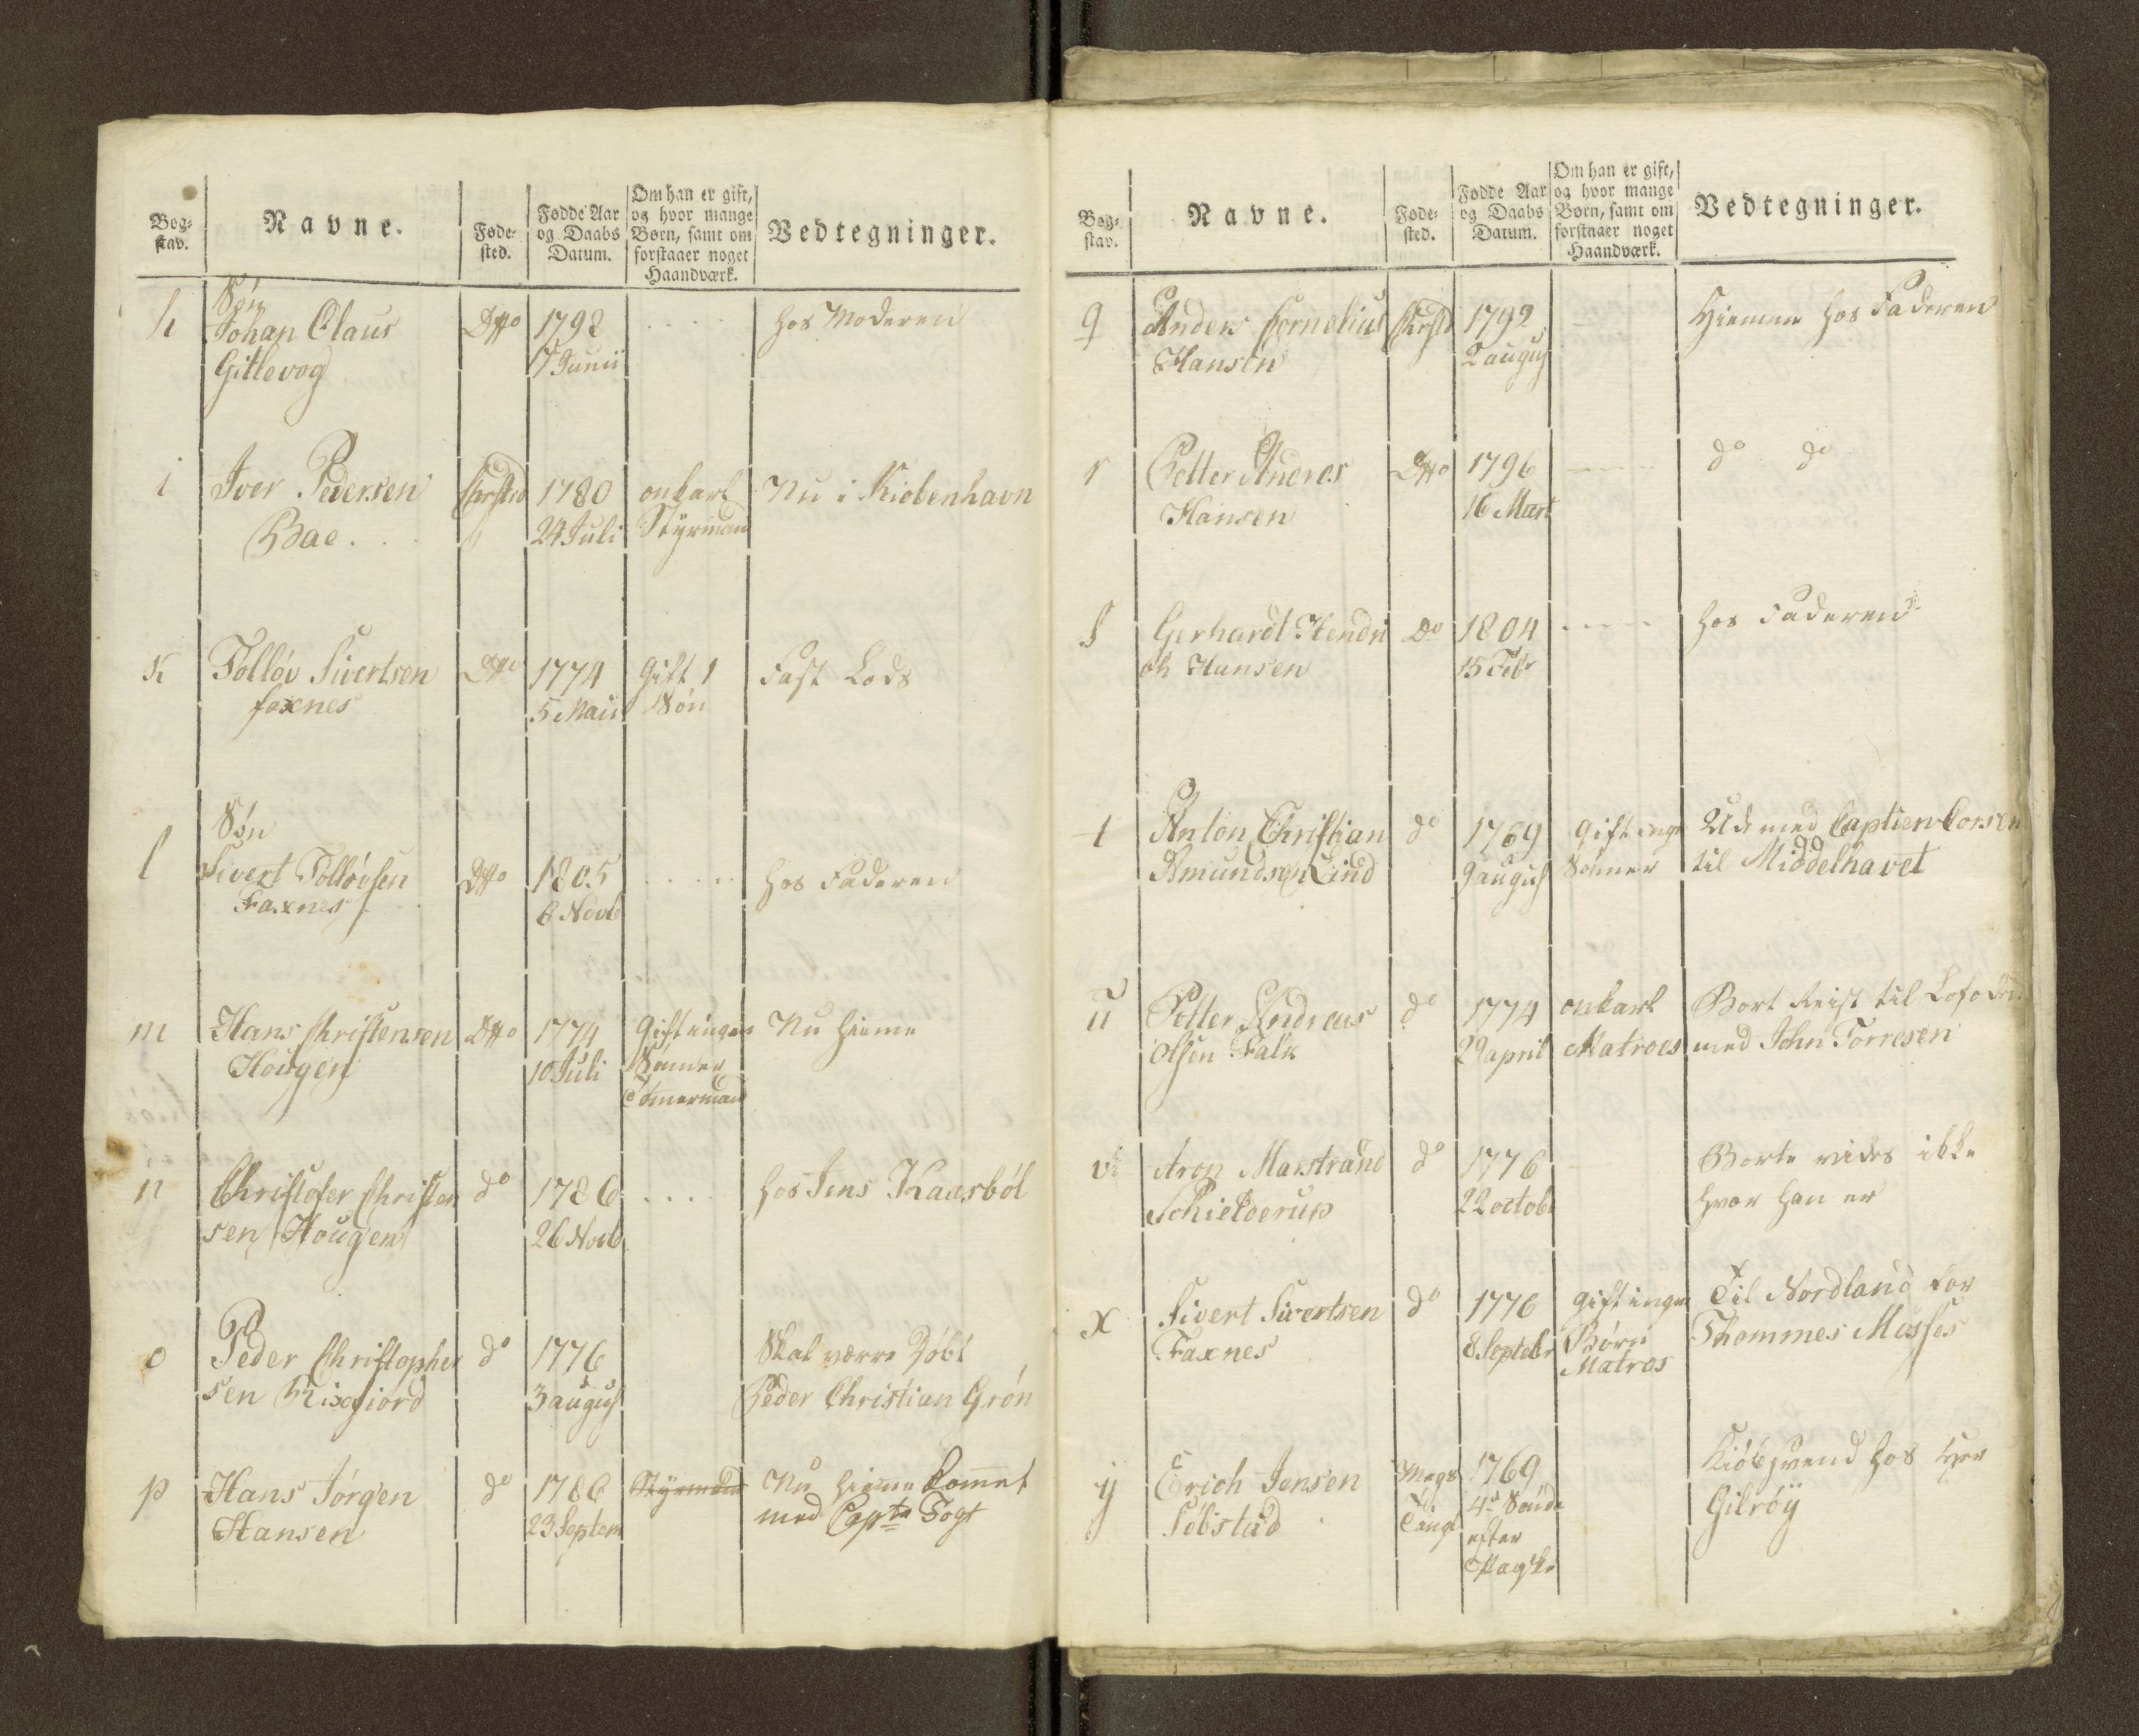 Bog-
stav.
Navne.
Føde-
sted.
Fødde Aar
og Daabs
Datum.
Om han er gift,
og hvor mange
Børn, samt om
forstaaer noget
Haandværk.
Vedtegninger.
h
Søn
Johan Claus
Gitlevog
Dtto
1798
17 Junii
hos Moderen
i
Iver Pedersen
Bae.
Christsd
1780
24 Juli
onkarl
Styrmand
Nu i Kiobenhavn
K
Tolløv Sivertsen
faxnes
Dtto
1774
5 Maii
Gift 1
Søn
Fast Lods
l
Søn
Sivert Tolløvsen
Faxnes
Dtto
1805
6 Novb
hos Faderen
m
Hans Christensen
Hougen
Dtto
1774
10 Juli
Gift ingen
Sønner
Tömermand
Nu hieme
n
Christofer Christen
sen Hougen
do
1786
26 Novb
hos Jens Kaarsböl
o
Peder Christopher
sen Rixfiord
do
1776
3 august
Skal være Döbt
Peder Christian Grön
p
Hans Jörgen
Hansen
do
1786
23 Septem
Styrmand
Nu hieme komet
med Captn Fogt
Bog-
stav.
Navne.
Føde-
sted.
Fødde Aar
og Daabs
Datum.
Om han er gift,
og hvor mange
Børn, samt om
forstaaer noget
Haandværk.
Vedtegninger.
q
Anders Cornelius
Hansen
Christsd
1792
2 august
Hiemme hos Faderen
r
Petter Andreas
Hansen
Dtto
1796
16 Mart
do do
s
Gerhardt Hendri
ch Hansen
Do
1804
15 Febr
hos Faderen
t
Anton Christian
Amundsen Lind
do
1769
9 august
Gift ingen
Sönner
Ude med Captien Corsen
til Middelhavet
u
Petter Andreas
Olsen Falk
do
1774
29 april
onkarl
Matroes
Bort Reist til Lofoden
med John Torresen
v
Aron Marstrand
Schielderup
do
1776
22 octob
Borte vides ikke
hvor han er
x
Sivert Sivertsen
Faxnes
do
1776
8 Septebr
Gift ingen
Börn
Matros
Til Nordland for
Thommes Mosses
y
Erich Jensen
Sobstad
1769
4de Sönda
efter
Paaske
Kiöbsvend hos Hr
Gilröy